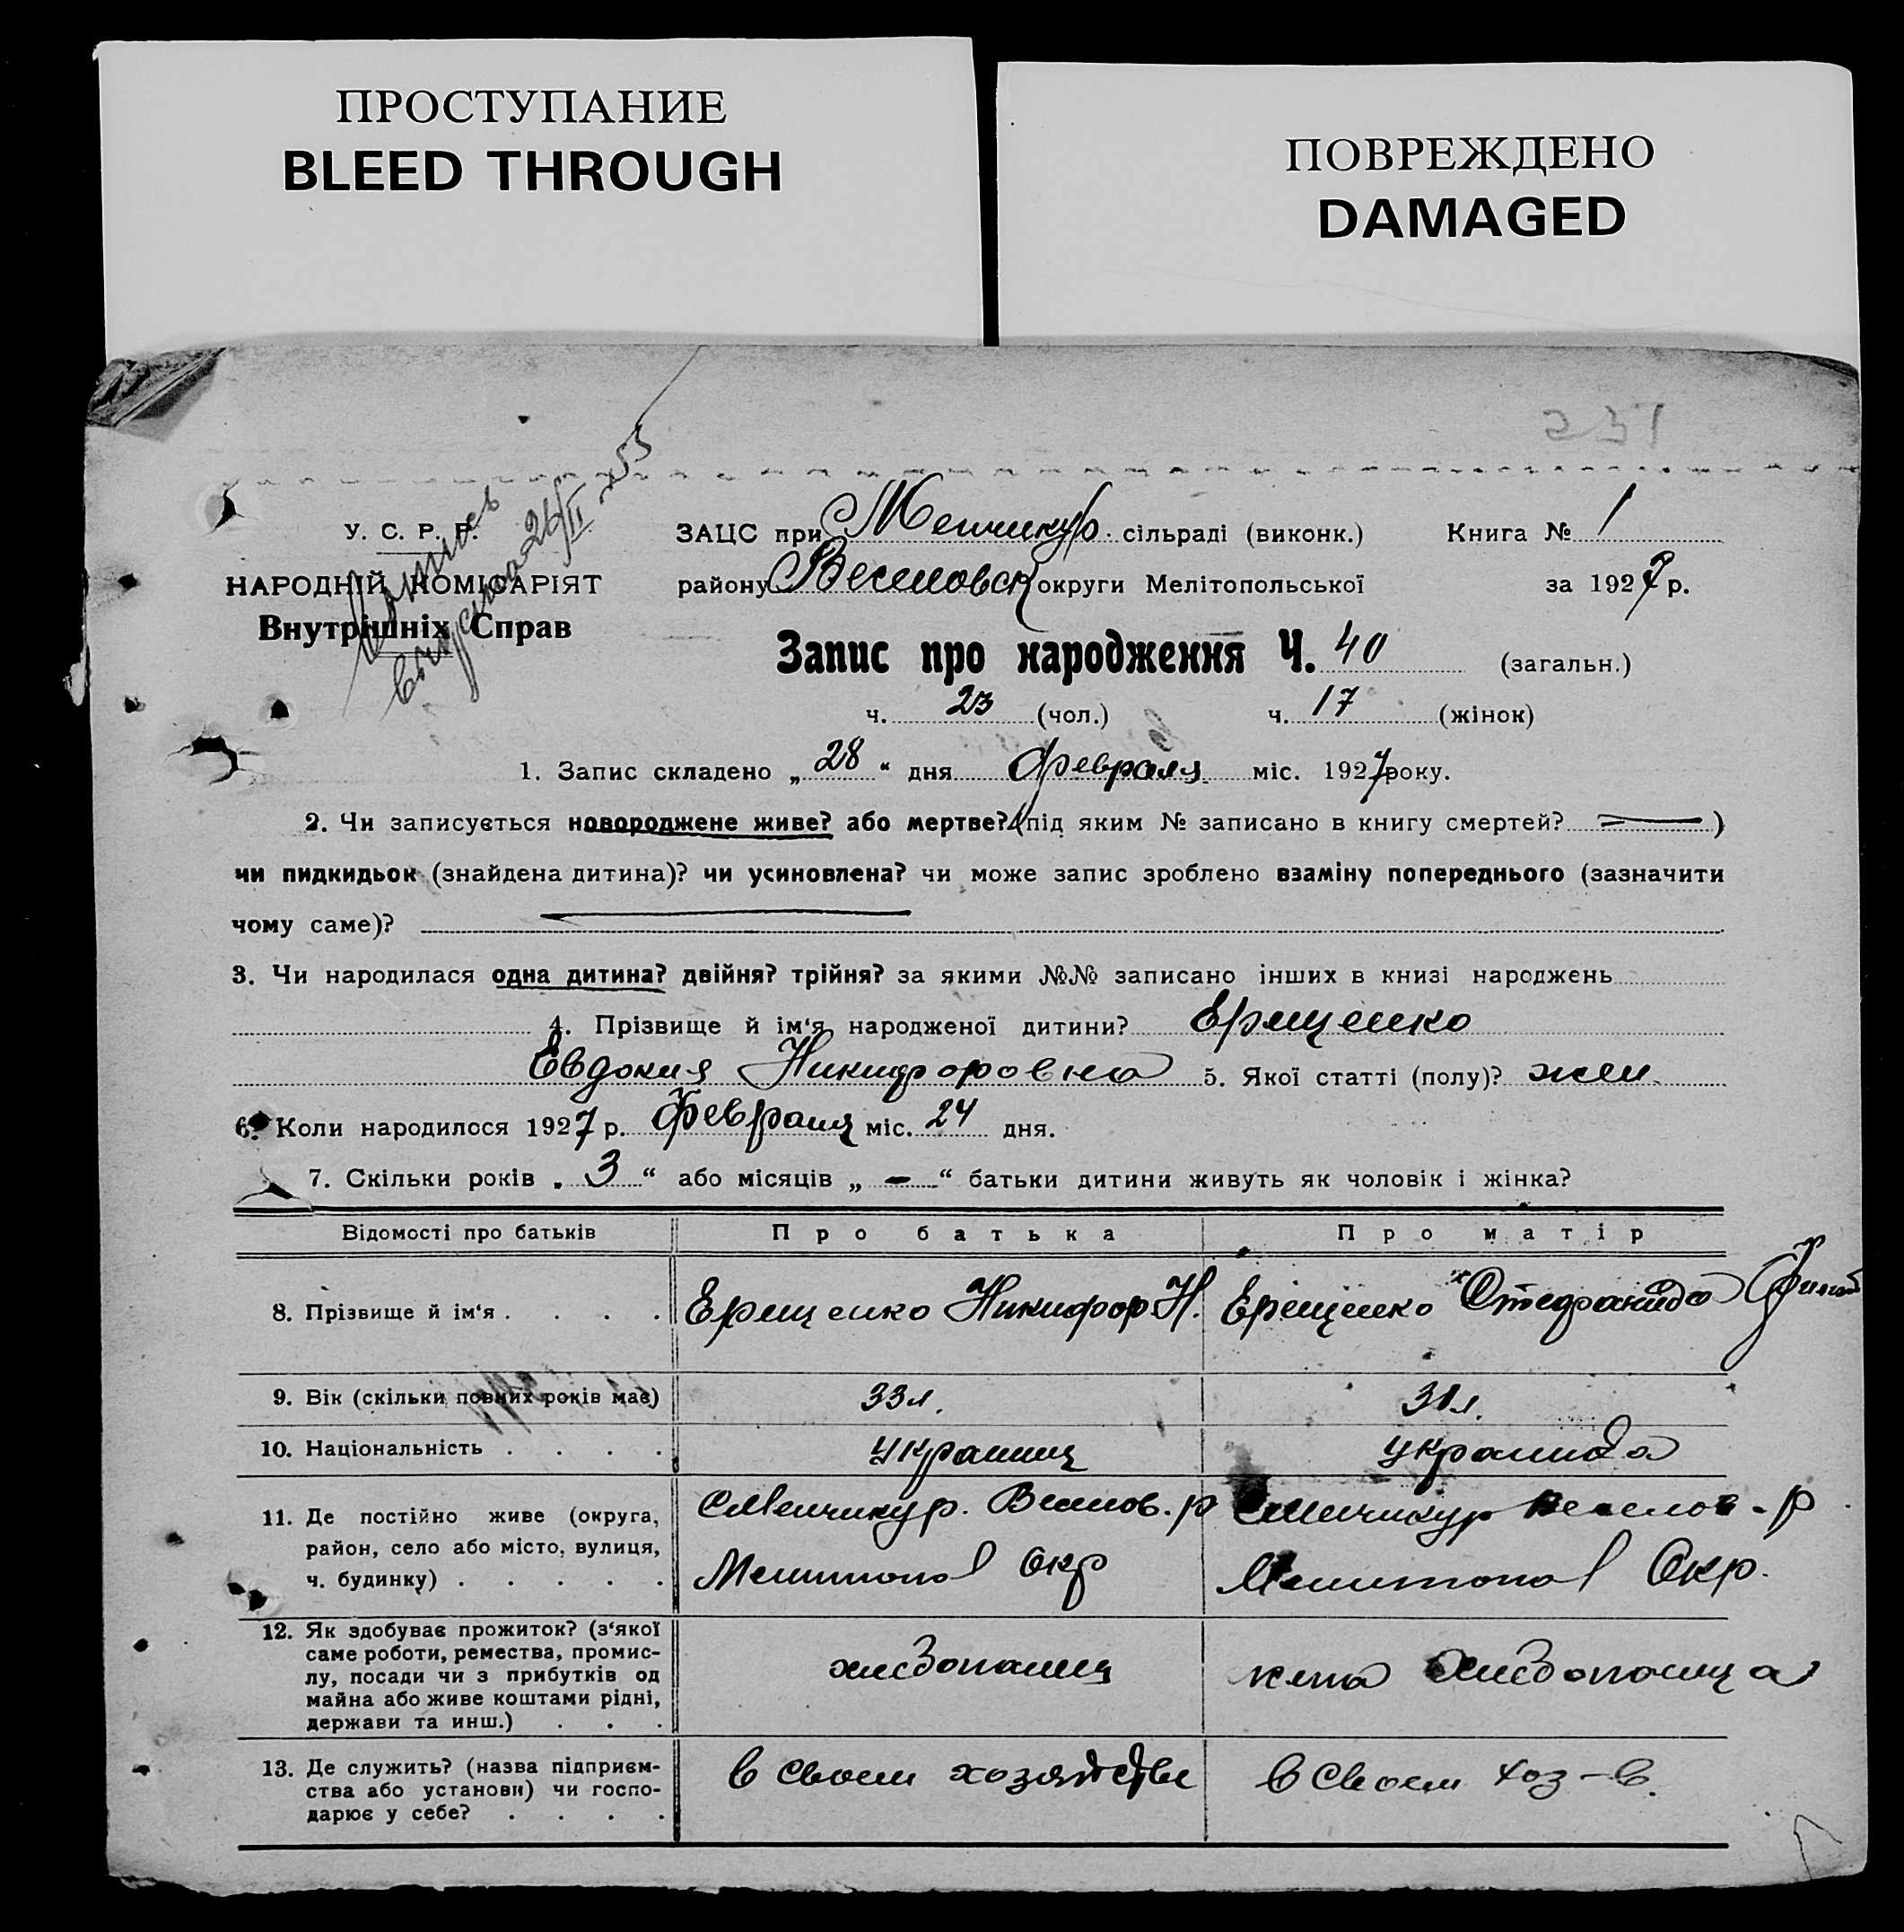 ПРОСТУПАНИЕ
BLEED THROUGH
ПОВРЕЖДЕНО
DAMAGED
У. С. Р. Р.
НАРОДНІЙ КОМІСАРІЯТ
Внутрішніх Справ
26/II 53
ЗАЦС при Менчикур. сільраді (виконк.) Книга № 1
району Веселовск округи Мелітопольської за 1927 р.
Запис про народження Ч. 40 (загальн.)
ч. 23 (чол.) ч. 17 (жінок)
1. Запис складено „ 28 “ дня Февраля міс. 1927 року.
2. Чи записується новороджене живе? або мертве? (під яким № записано в книгу смертей? )
чи пидкидьок (знайдена дитина)? чи усиновлена? чи може запис зроблено взаміну попереднього (зазначити
чому саме)?
3. Чи народилася одна дитина? двійня? трійня? за якими №№ записано інших в книзі народжень
4. Прізвище й ім‘я народженої дитини? Ерещенко
Евдокия Никифоровна 5. Якої статті (полу)? жен.
6. Коли народилося 1927 р. Февраля міс. 24 дня.
7. Скільки років „ 3 “ або місяців „ – “ батьки дитини живуть як чоловік і жінка?
Відомості про батьків Про батька Про матір
8. Прізвище й ім‘я . . . . Ерещенко Никифор Н. Ерещенко Стефанида
9. Вік (скільки повних років має) 33 л. 31 л.
10. Національність . . . . украинц украинка
11. Де постійно живе (округа, район, село або місто, вулиця, ч. будинку) . . . . . с Менчикур. Веселов. р Мелитопол Окр с Менчикур Веселов - р Мелитопол Окр.
12. Як здобуває прожиток? (з‘якої саме роботи, ремества, промислу, посади чи з прибутків од майна або живе коштами рідні, держави та инш.) . . . хлебопашец жена хлебопашца
13. Де служить? (назва підприємства або установи) чи господарює у себе? . . . . в своем хозяйстве в своем хоз-в.